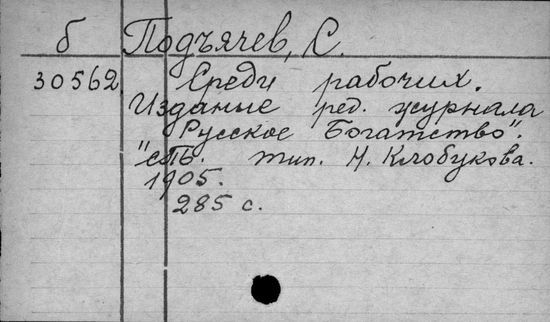 б Подъячев, С.
30562 Среди рабочих.
Издание ред. журнала
"Русское Богатство".
СПБ. тип. Н. Клобукова.
1905.
285 с.